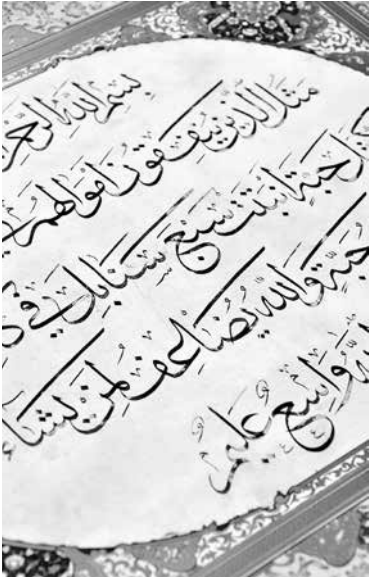 بِسْمِ اللهِ
مَثَلُ الَّذِينَ يُنْفِقُونَ أَمْوَالَهُمْ
حَبَّةٍ أَنْبَتَتْ سَبْعَ سَنَابِلَ فِي
حَبَّةٍ وَاللهُ يُضَاعِفُ لِمَنْ يَشَاءُ
وَاسِعٌ عَلِيمٌ